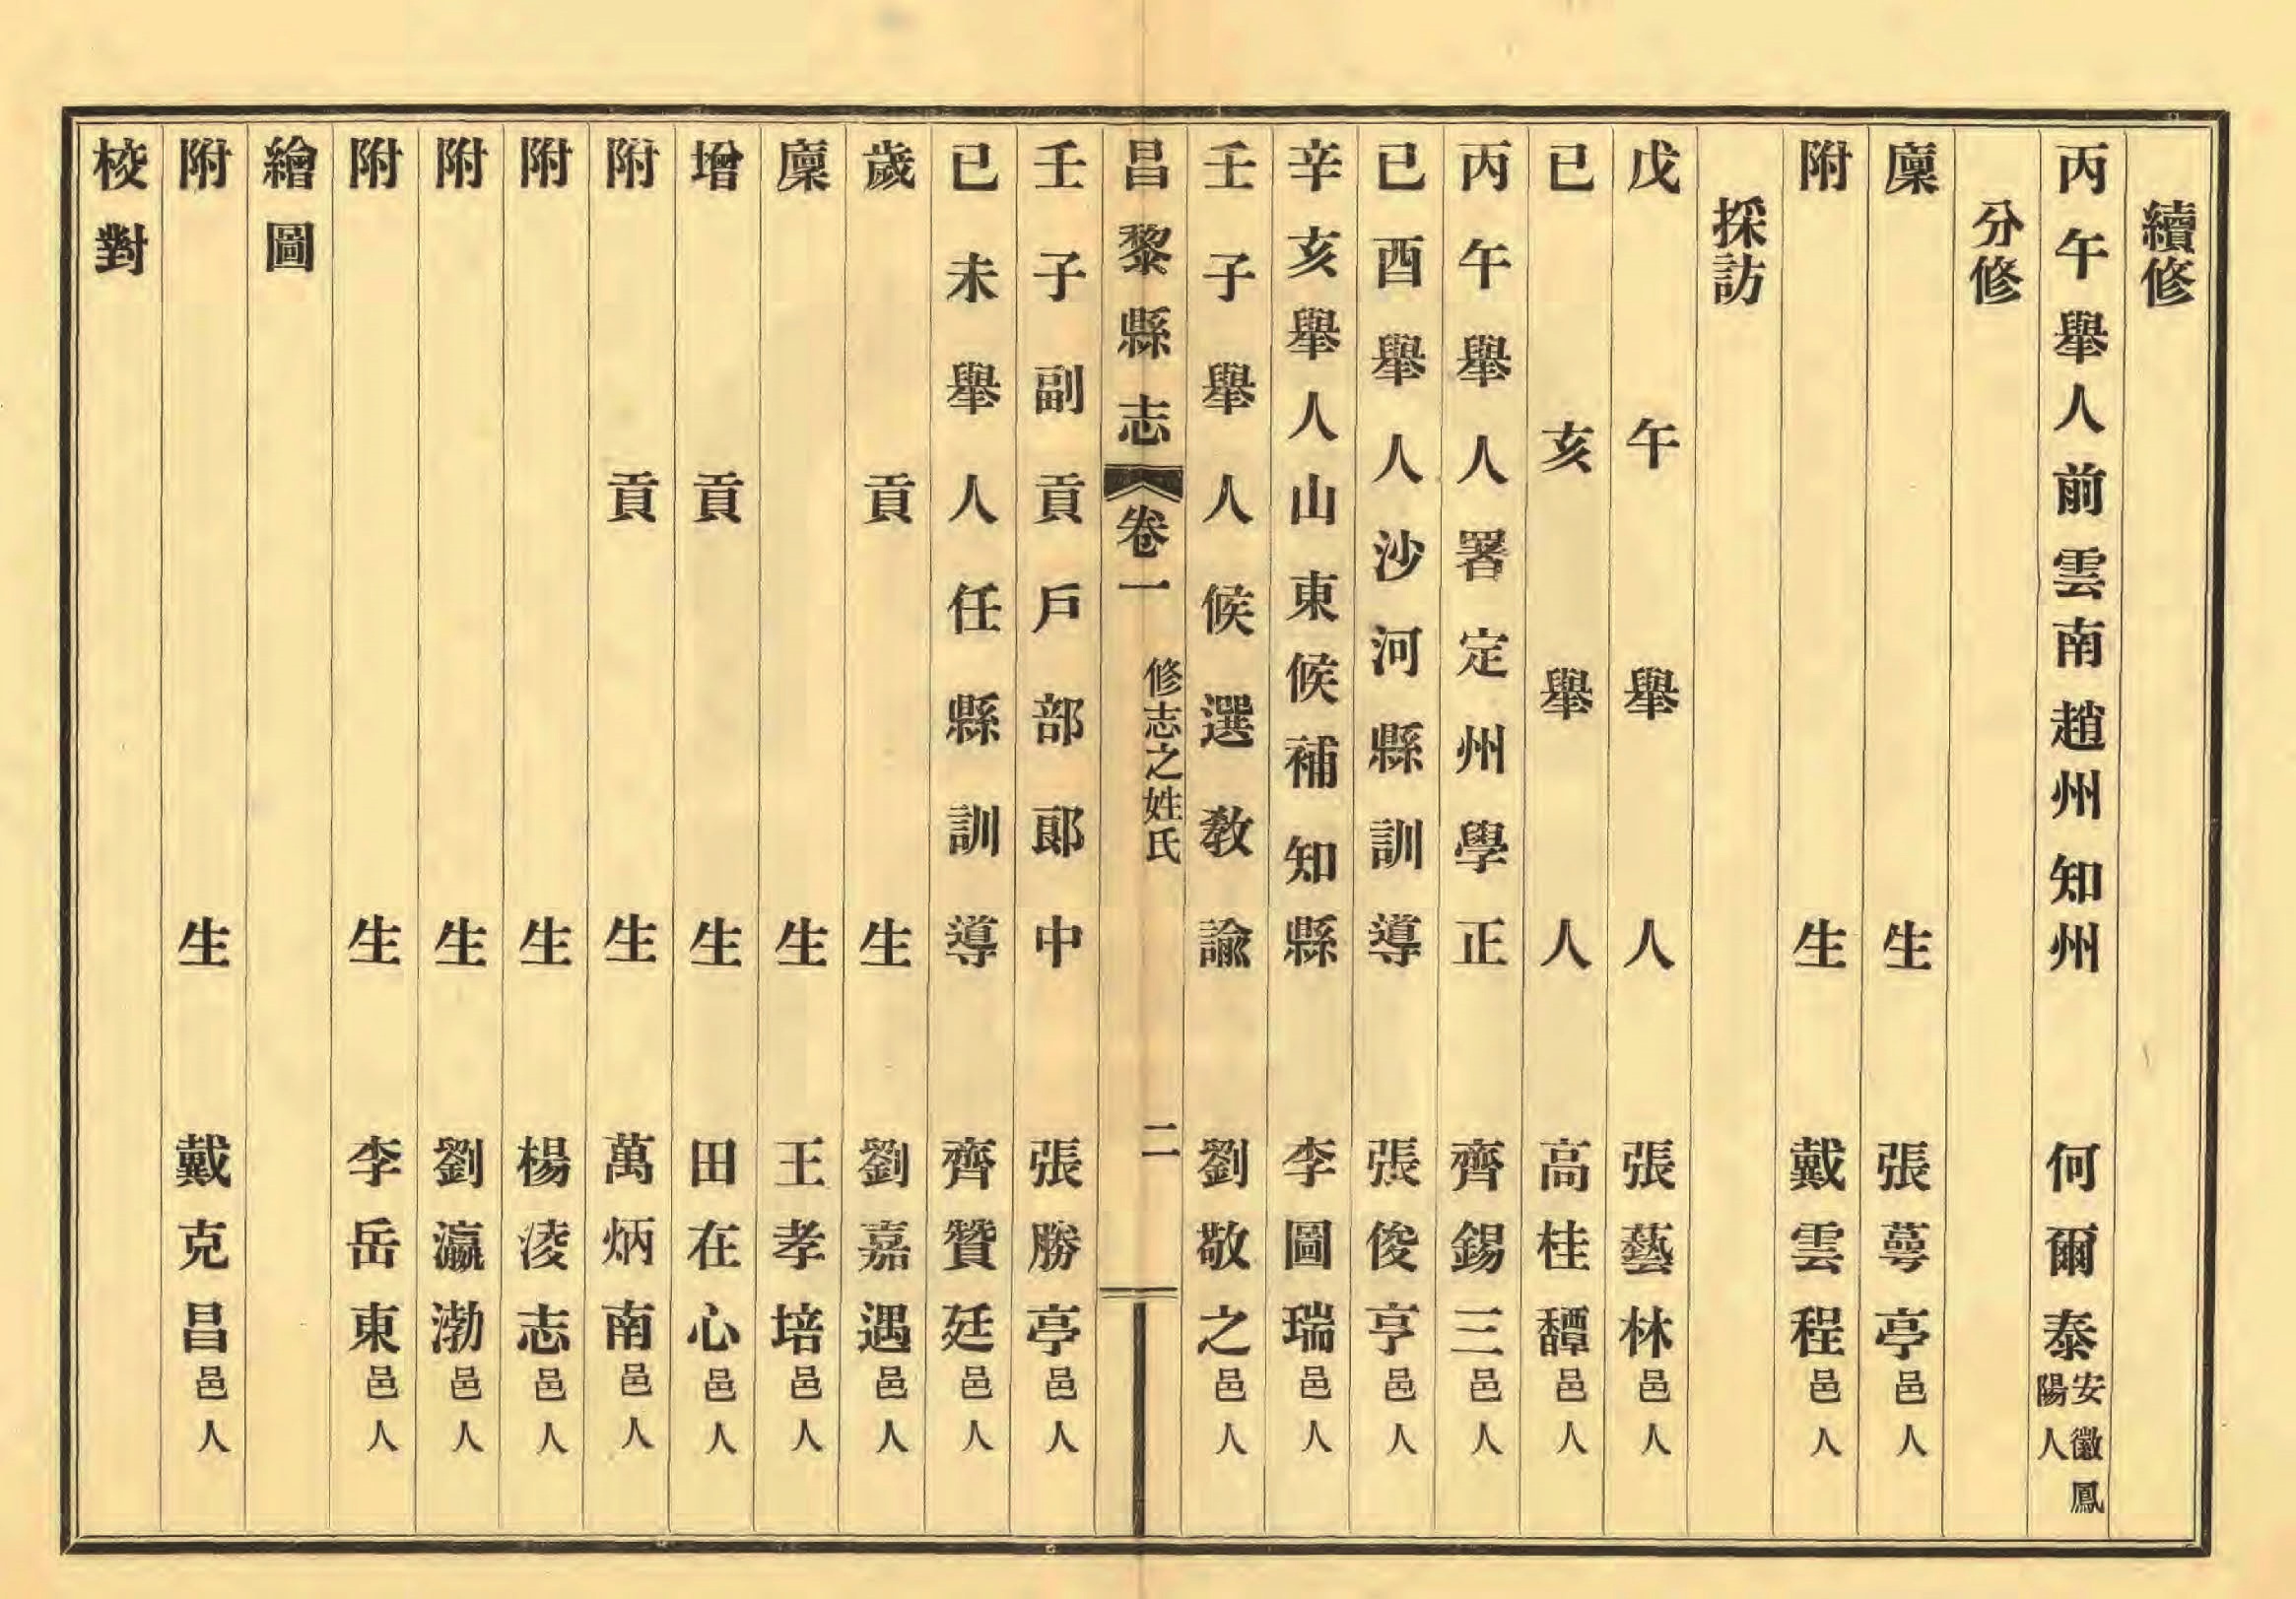 續修
丙午舉人前雲南趙州知州　何爾泰安徽鳳陽人
分修
廩生　張蕚亭邑人
附生　戴雲程邑人
採訪
戊午舉人　張藝林邑人
已亥舉人　高桂馪邑人
丙午舉人署定州學正　齊錫三邑人
已酉舉人沙河縣訓導　張俊亨邑人
辛亥舉人山東候補知縣　李圖瑞邑人
壬子舉人候選教諭　劉敬之邑人
昌黎縣志　卷一　修志之姓氏　二
壬子副貢戶部郎中　張勝亭邑人
已未舉人任縣訓導　齊贊廷邑人
歲貢生　劉嘉遇邑人
廩生　王孝培邑人
增貢生　田在心邑人
附貢生　萬炳南邑人
附生　楊淩志邑人
附生　劉瀛渤邑人
附生　李岳東邑人
繪圖
附生　戴克昌邑人
校對